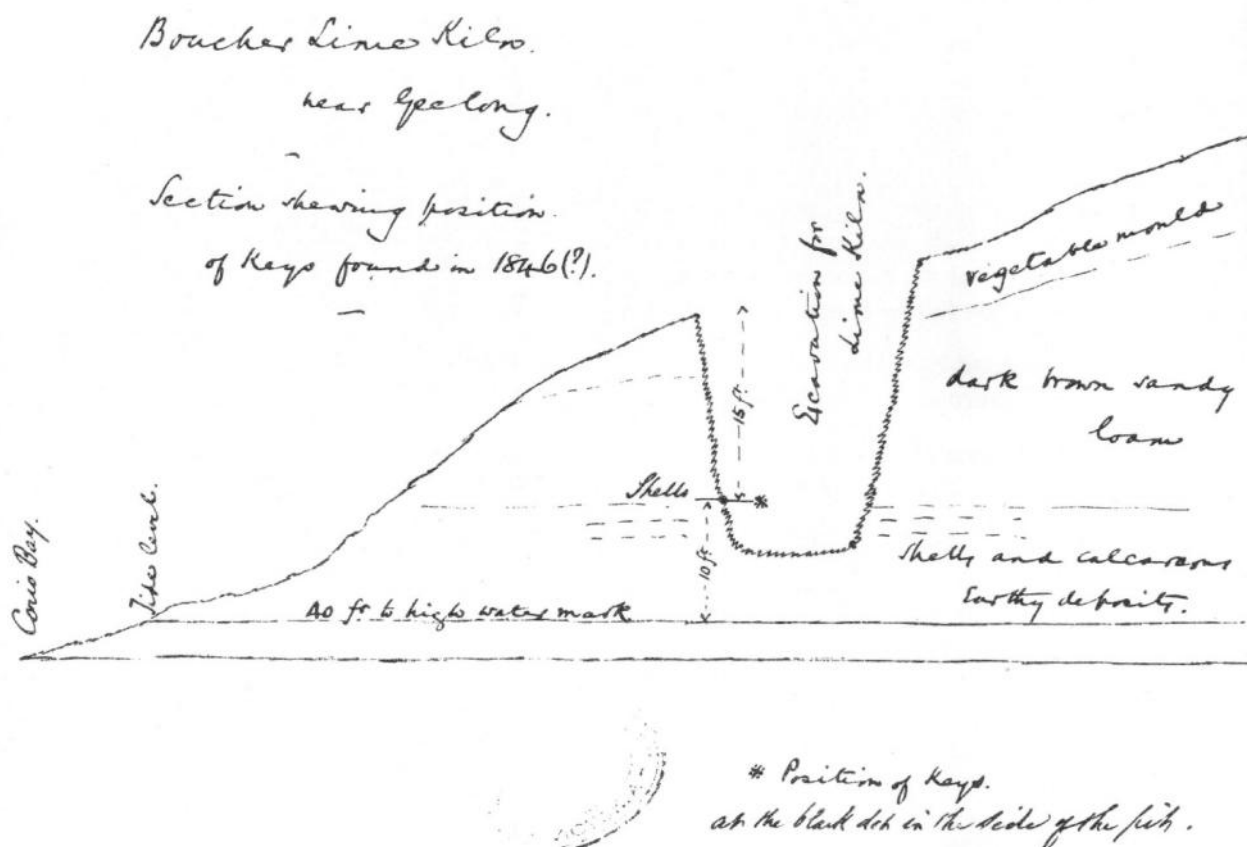 Boucher Lime Kiln.
near Geelong.
Section shewing position
of Keys found in 1846(?).
Excavation for
Lime Kiln.
vegetable mould
dark brown sandy
loam
15 ft
Shells
10 ft
shells and calcareous
Earthy deposits.
Corio Bay.
Tide level.
40 ft to high water mark
* Position of Keys.
at the black dot in the side of the pit.